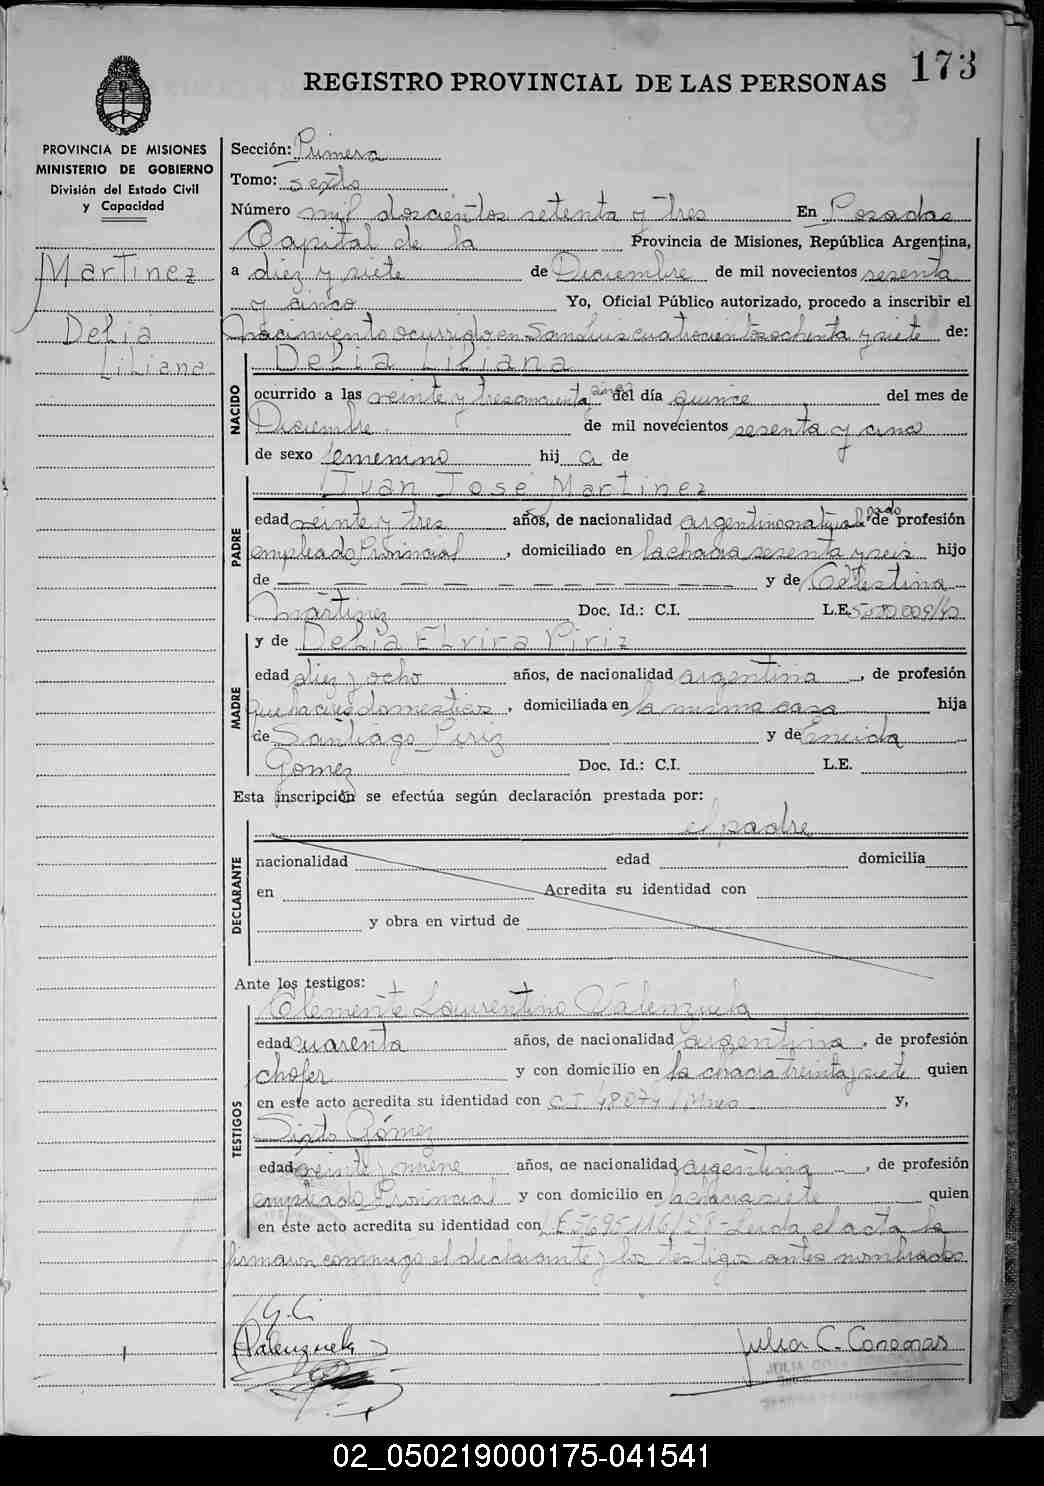 173
REGISTRO PROVINCIAL DE LAS PERSONAS
PROVINCIA DE MISIONES
MINISTERIO DE GOBIERNO
División del Estado Civil
y Capacidad
Martinez
Delia
Liliana
Sección: Primera
Tomo: sexto
Número mil doscientos setenta y tres En Posadas
Capital de la Provincia de Misiones, República Argentina,
a diez y siete de Diciembre de mil novecientos sesenta
y cinco Yo, Oficial Público autorizado, procedo a inscribir el
nacimiento ocurrido en San Luis cuatrocientos ochenta y siete de:
NACIDO
Delia Liliana
ocurrido a las veinte y tres cincuenta cinco del día quince del mes de
Diciembre de mil novecientos sesenta y cinco
de sexo femenino hij a de
PADRE
Juan José Martinez
edad veinte y tres años, de nacionalidad argentino de profesión
empleado Provincial, domiciliado en la chacra sesenta y seis hijo
de — — — — — — — — — y de Celestina
Martinez Doc. Id.: C.I. L.E.
MADRE
y de Delia Elvira Piriz
edad diez y ocho años, de nacionalidad argentina, de profesión
quehaceres domesticos, domiciliada en la misma casa hija
de Santiago Piriz y de Eneida
Gomez Doc. Id.: C.I. L.E.
Esta inscripción se efectúa según declaración prestada por:
el padre
DECLARANTE
nacionalidad edad domicilia
en Acredita su identidad con
y obra en virtud de
Ante los testigos:
TESTIGOS
Clemente Laurentino Valenzuela
edad cuarenta años, de nacionalidad argentina, de profesión
chofer y con domicilio en la chacra treinta y siete quien
en este acto acredita su identidad con C.I. y,
Sixto Gómez
edad veinte y nueve años, de nacionalidad argentina, de profesión
empleado Provincial y con domicilio en la chacra siete quien
en este acto acredita su identidad con L.E. 5695116/59 - Leida el acta la
firman conmigo el declarante y los testigos antes nombrados
Valenzuela
Julia C.
02_050219000175-041541